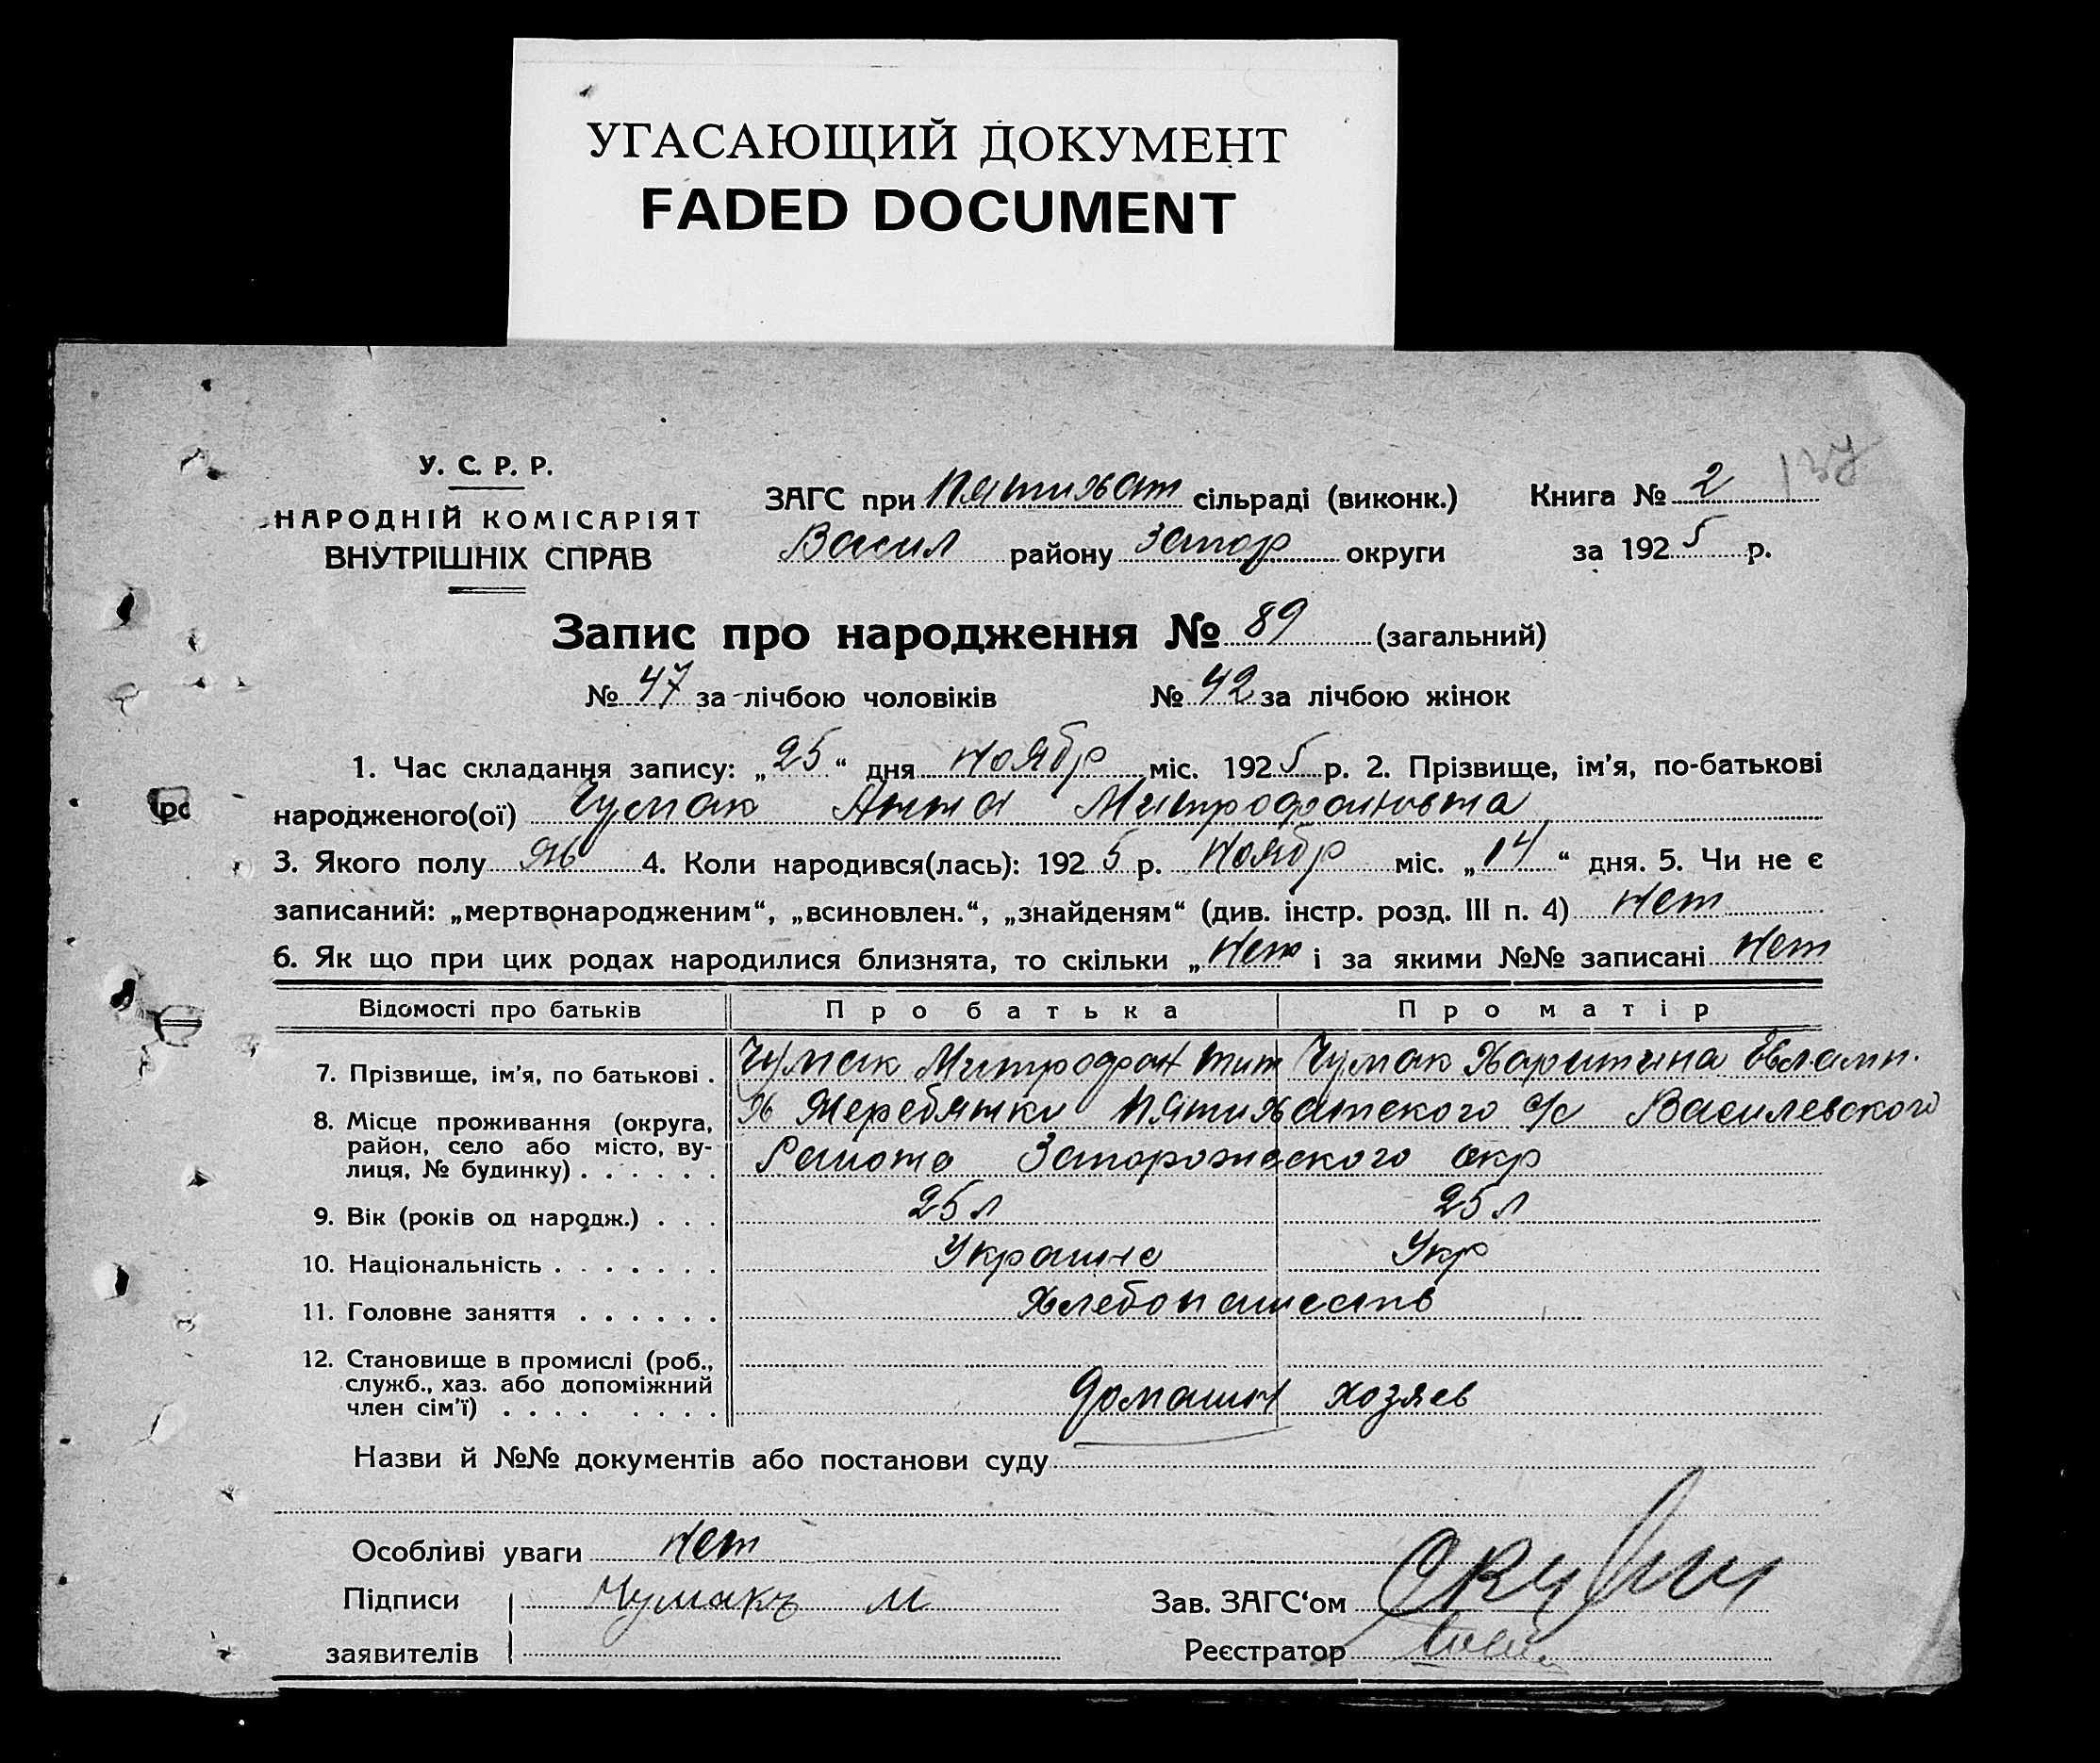 УГАСАЮЩИЙ ДОКУМЕНТ
FADED DOCUMENT
У. С. Р. Р.
НАРОДНІЙ КОМІСАРІЯТ
ВНУТРІШНІХ СПРАВ
ЗАГС при Пятихат сільраді (виконк.) Книга № 2 137
Васил району Запор округи за 1925 р.
Запис про народження № 89 (загальний)
№ 47 за лічбою чоловіків № 42 за лічбою жінок
1. Час складання запису: „25“ дня Ноябр міс. 1925 р. 2. Прізвище, ім'я, по-батькові
народженого(ої) Чумак Анна Митрофановна
3. Якого полу Ж 4. Коли народився(лась): 1925 р. Ноябр міс. „14“ дня. 5. Чи не є
записаний: „мертвонародженим“, „всиновлен.“, „знайденям“ (див. інстр. розд. III п. 4) Нет
6. Як що при цих родах народилися близнята, то скільки „Нет і за якими №№ записані Нет
Відомості про батьків Про батька Про матір
7. Прізвище, ім'я, по батькові . Чумак Митрофан Тит Чумак Харитина Евламп.
8. Місце проживання (округа, Х Жеребятки Пятихатского с/с Василевского
район, село або місто, ву-
лиця, № будинку) . . . . . . Район Запорожского окр
9. Вік (років од народж.) . . . 25 л 25 л
10. Національність . . . . . . . Украине Укр
11. Головне заняття . . . . . . Хлебопашеств
12. Становище в промислі (роб.,
служб., хаз. або допоміжний
член сім'ї) . . . . . . . . Домашн хозяев
Назви й №№ документів або постанови суду
Особливі уваги Нет
Підписи Чумакъ М Зав. ЗАГС‘ом
заявителів Реєстратор